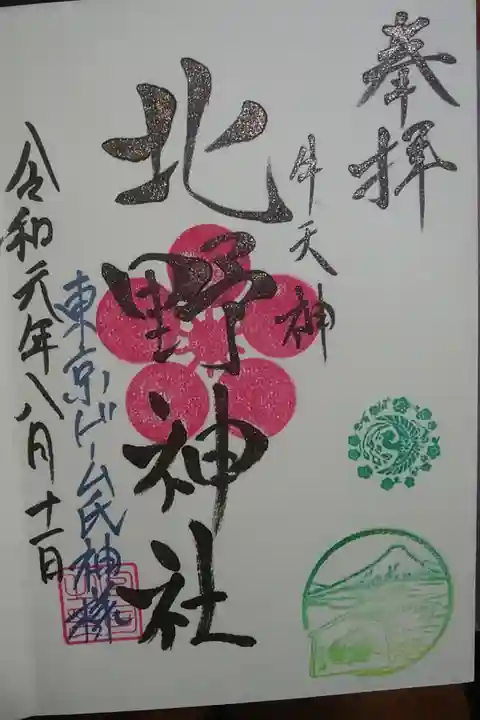 奉拝
牛天神
北野神社
東京ドーム氏神様
令和元年八月十一日